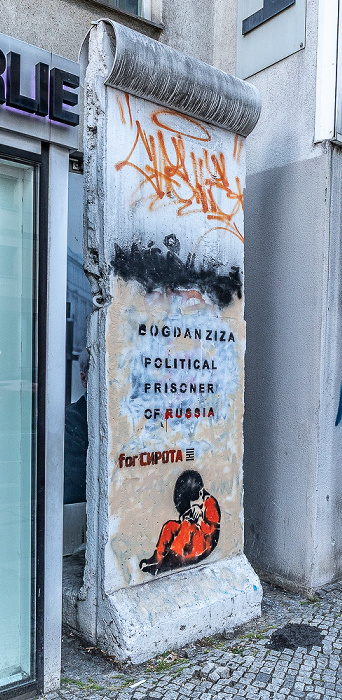 RLIE
BOGDAN ZIZA
POLITICAL
PRISONER
OF RUSSIA
for СИРОТА